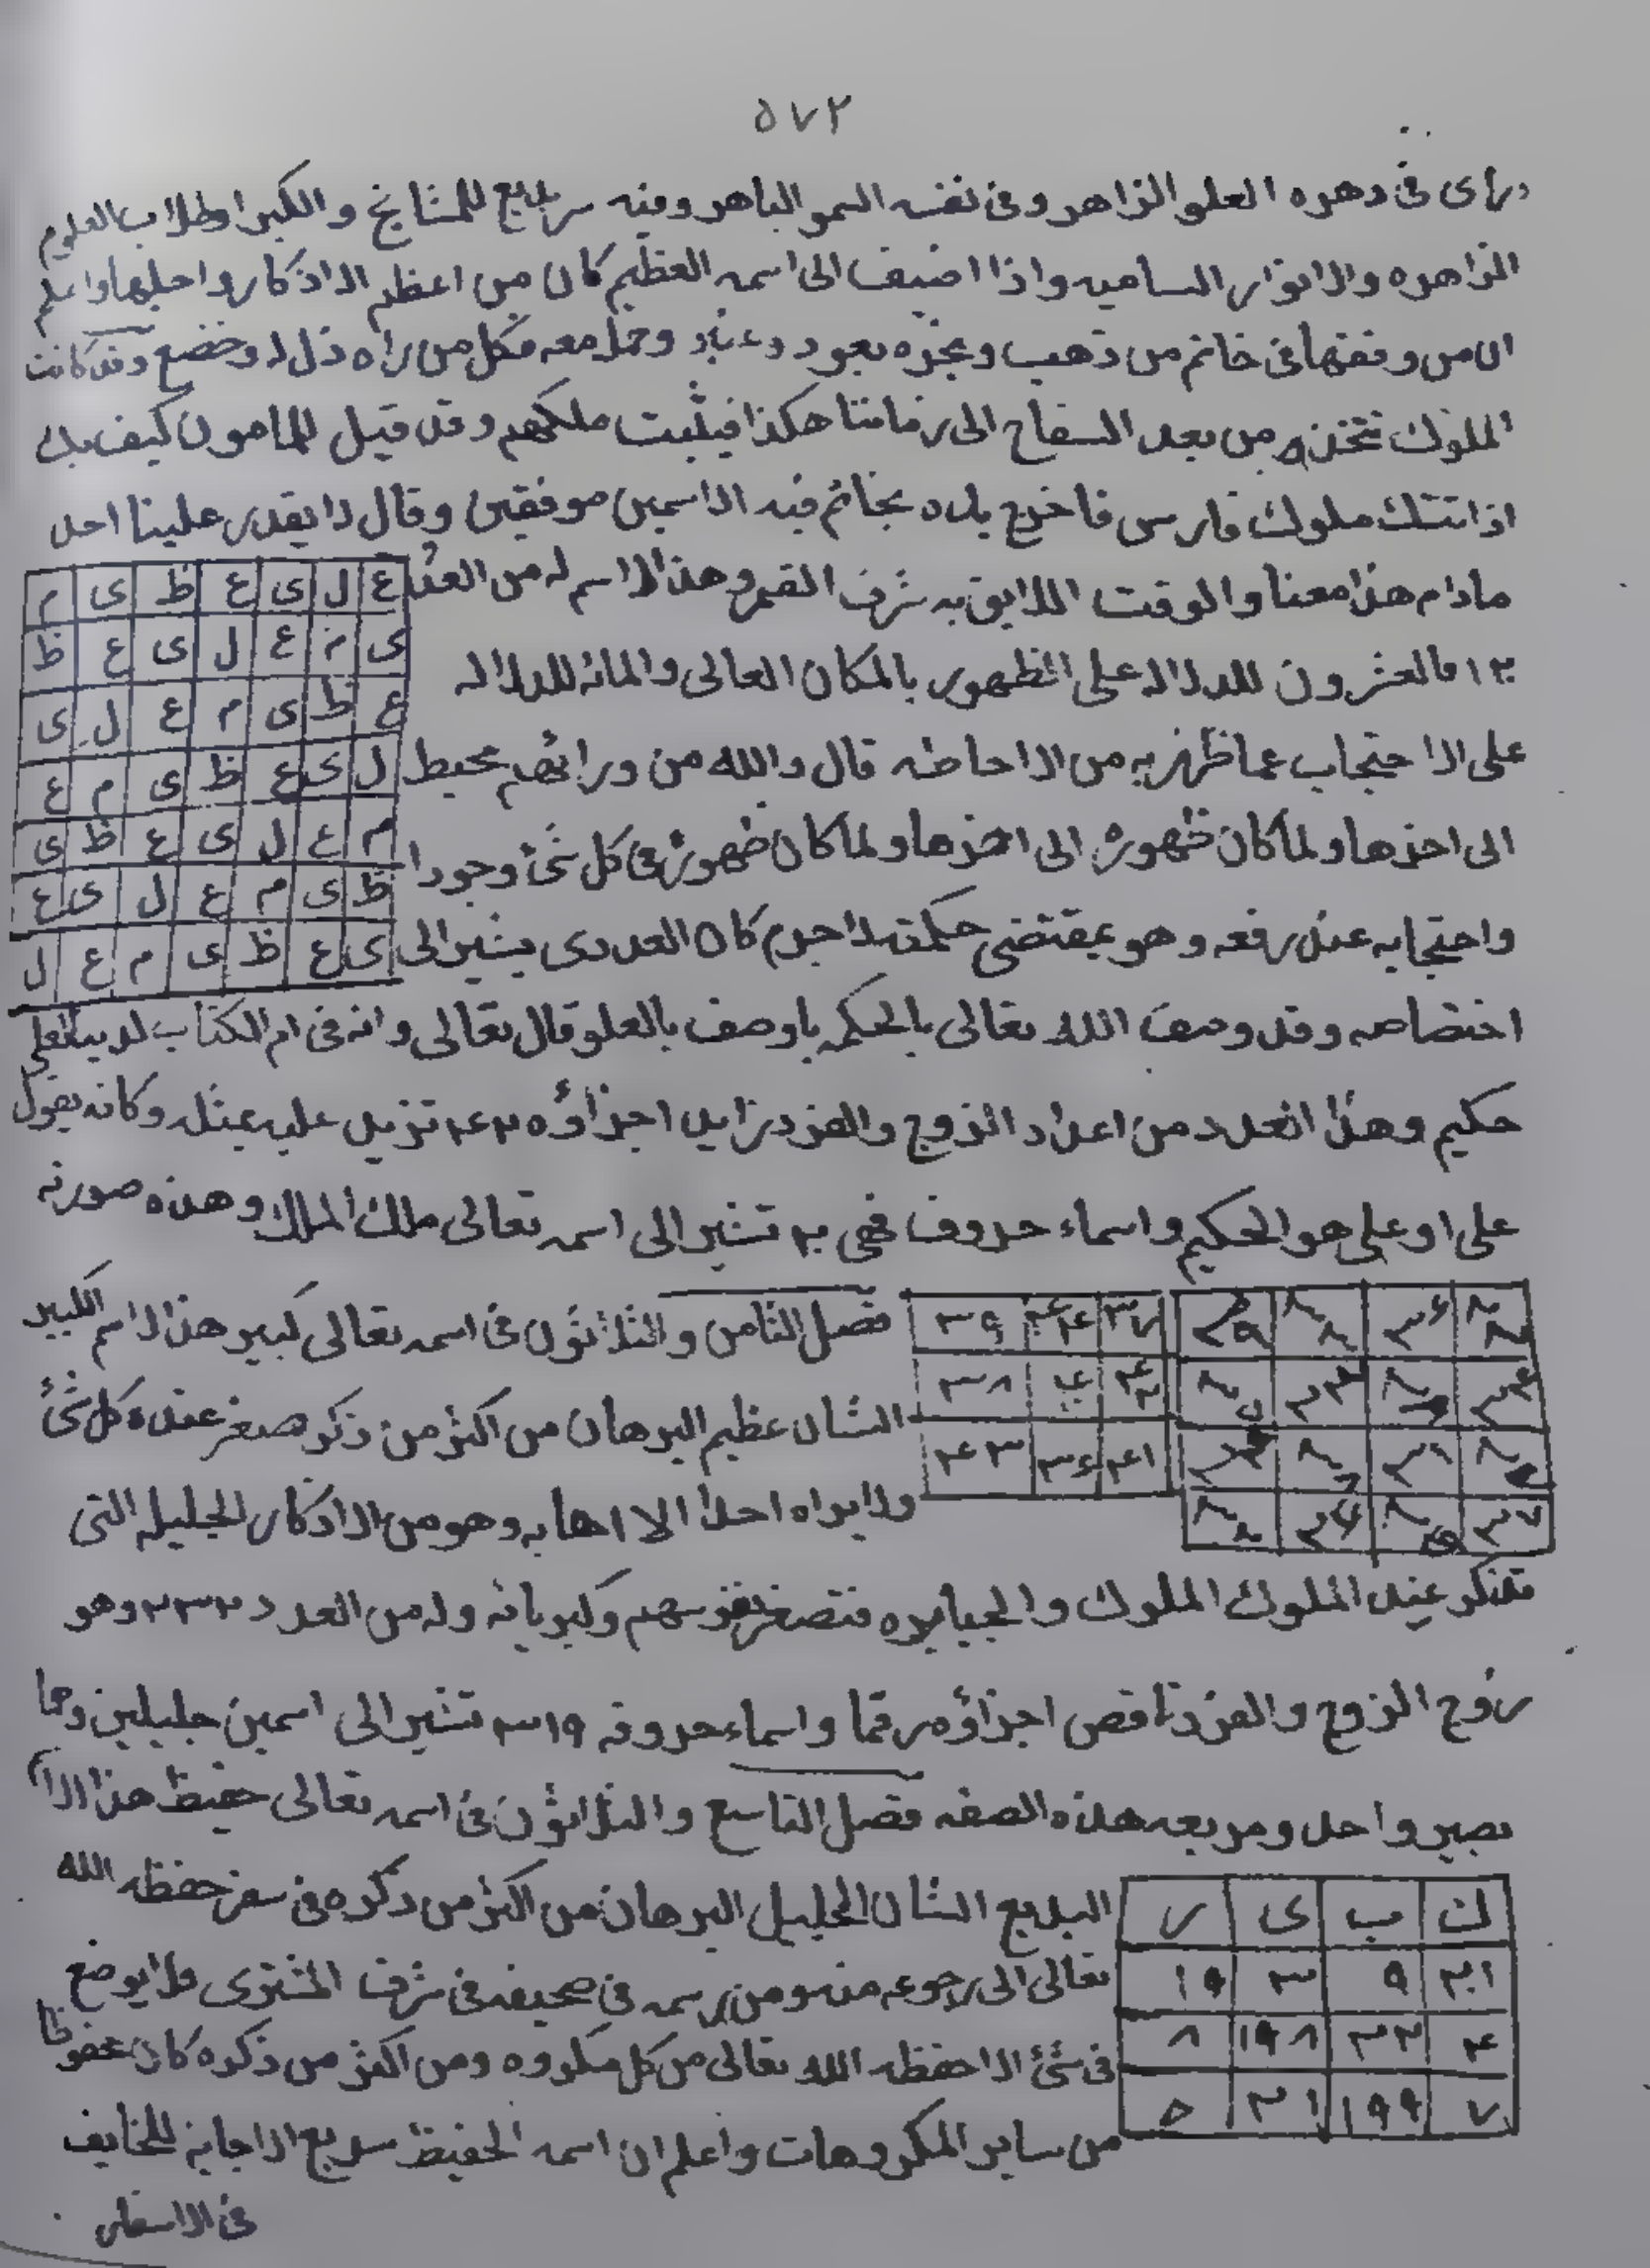 ٥٧٢
راى فى دهره العلو الزاهر وفى نفسه السمو الباهر وفيه سر بديع للمشايخ والكبرا وطلاب العلوم
الزاهره والانوار الساميه واذا اضيف الى اسمه العظيم كان من اعظم الاذكار واجليها واعلم
ان من وفقها فى خاتم من ذهب وبخره بعود وحمله معه فكل من راه ذل له وخضع وقد كانت
الملوك تتخذه من بعد السفاح الى زماننا هكذا فيثبت ملكهم وقد قيل للمامون كيف بك
اذا انتك ملوك فارس فاخرج يده بخاتم فيه الاسمين موفقين وقال لا يقدر علينا احد
مادام هذا معنا والوقت اللايق به شرف القمر وهذا الاسم له من العدد
١٢٠ فالعشرون للدلاله على الظهور بالمكان العالى والمائه للدلاله
على الاحتجاب عما ظهر به من الاحاطه قال والله من ورائهم محيط
الى اخرها ولما كان ظهوره الى اخرها ولما كان ظهوره فى كل شئ وجودا
واحتجابه عند رفعه وهو بمقتضى حكمته لا جرم كان العددى يشير الى
ع ل ى ع ظ ى م
ى م ع ل ى ع ظ
ع ظ ى م ع ل ى
ل ى ع ظ ى م ع
م ع ل ى ع ظ ى
ظ ى م ع ل ى ع
ى ع ظ ى م ع ل
اختصاصه وقد وصف الله تعالى بالحكمه باوصف بالعلو قال تعالى وانه فى ام الكتاب لدينا لعلى
حكيم وهذا العدد من اعداد الزوج والفرد زايد اجزاؤه ٢٤٠ تزيد عليه بمثله وكانه يقول
على او على هو الحكيم واسماء حروف فهى تشير الى اسمه تعالى ملك الملك وهذه صورته
٣٧ ٤٤ ٣٩
٤٢ ٤٠ ٣٨
٤١ ٣٦ ٤٣
فصل الثامن والثلاثون فى اسمه تعالى كبير هذا الاسم الكبير
الشان عظيم البرهان من اكثر من ذكره صغر عنده كل شئ
ولا يراه احدا الا اهابه وهو من الاذكار الجليله التى
تذكر عند الملوك الملوك والجبابره فتصغر نفوسهم وكبريائه وله من العدد ٢٣٢ وهو
زوج الزوج والفرد ناقص اجزاؤه رقما واسماء حروفه ٣١٩ تشير الى اسمين جليلين وهما
بصير واحد ومربعه هذه الصفه فصل التاسع والثلاثون فى اسمه تعالى حفيظ هذا الا
ك ب ى ر
٢٠١ ٩ ٣ ١٩
٤ ٢٣ ١٩٨ ٨
٧ ١٩٩ ٢١ ٥
البديع الشان الجليل البرهان من اكثر من ذكره فى سفر حفظه الله
تعالى الى رجوعه منه ومن رسمه فى صحيفه فى شرف المشترى فلا يوضع
فى شئ الا حفظه الله تعالى من كل مكروه ومن اكثر من ذكره كان محفوظا
من ساير المكروهات واعلم ان اسمه الحفيظ سريع الاجابة للخايف
فى الاسفار